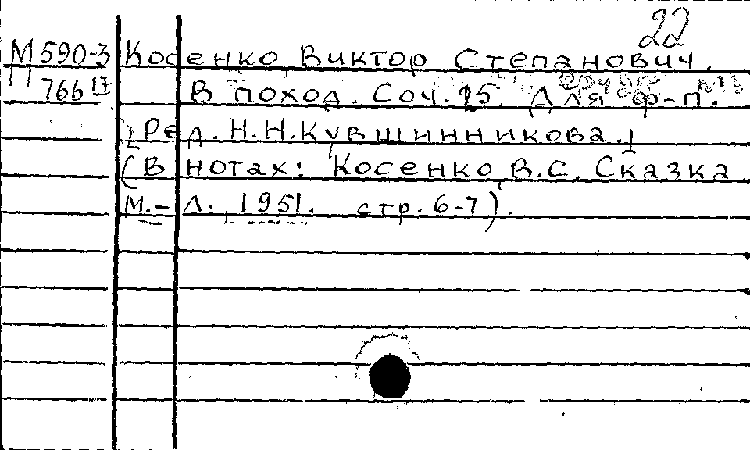 22
М 590-3 Косенко Виктор Степанович.
П 766 В поход. Соч. 15 Для ф-п.
[Ред. Н.Н. Кувшинникова.]
(В нотах: Косенко В.С. Сказка
М.-Л. 1951. стр. 6-7).